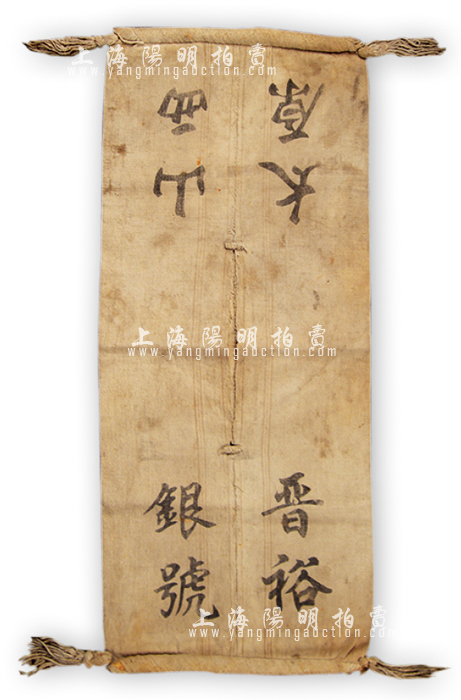 上海陽明拍賣
www.yangmingauction.com
山西
太原
上海陽明拍賣
www.yangmingauction.com
晋裕
銀號
上海陽明拍賣
www.yangmingauction.com